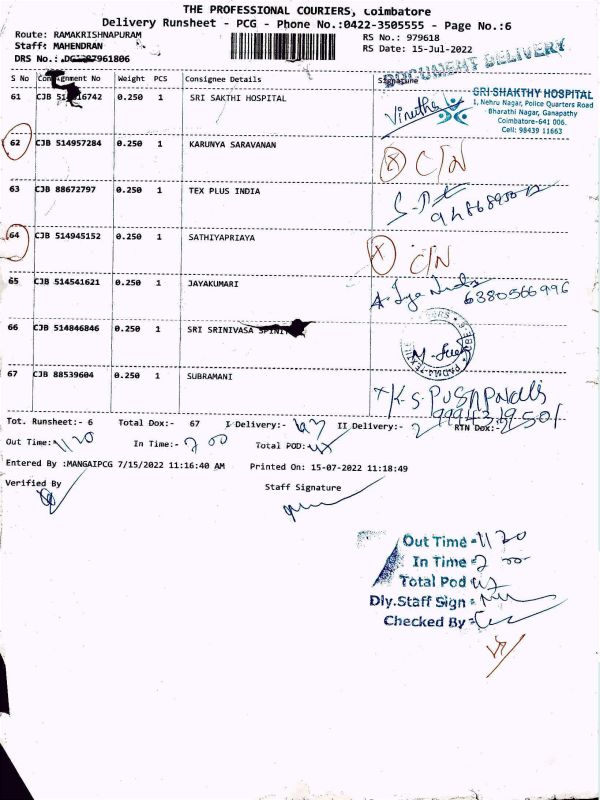 THE PROFESSIONAL COURIERS, Coimbatore
Delivery Runsheet - PCG - Phone No.:0422-3505555 - Page No.:6
Route: RAMAKRISHNAPURAM
RS No.: 979618
Staff: MAHENDRAN
RS Date: 15-Jul-2022
DRS No.:
DOCUMENT DELIVERY
S No Consignment No Weight PCS Consignee Details Signature
61 CJB 0.250 1 SRI SAKTHI HOSPITAL
Vinutha
SRI SHAKTHY HOSPITAL
1, Nehru Nagar, Police Quarters Road
Bharathi Nagar, Ganapathy
Coimbatore-641 006.
Cell: 98439 11663
62 CJB 514957284 0.250 1 KARUNYA SARAVANAN
X C/N
63 CJB 88672797 0.250 1 TEX PLUS INDIA
64 CJB 514945152 0.250 1 SATHIYAPRIAYA
X C/N
65 CJB 514541621 0.250 1 JAYAKUMARI
6380566996
66 CJB 514846846 0.250 1 SRI SRINIVASA
67 CJB 88539604 0.250 1 SUBRAMANI
Tot. Runsheet:- 6 Total Dox:- 67 I Delivery:- II Delivery:- 2 RTN Dox:-
Out Time:- 1120 In Time:- 2 00 Total POD:-
Entered By :MANGAIPCG 7/15/2022 11:16:40 AM Printed On: 15-07-2022 11:18:49
Verified By
Staff Signature
Out Time = 1120
In Time = 2 00
Total Pod
Dly.Staff Sign =
Checked By =